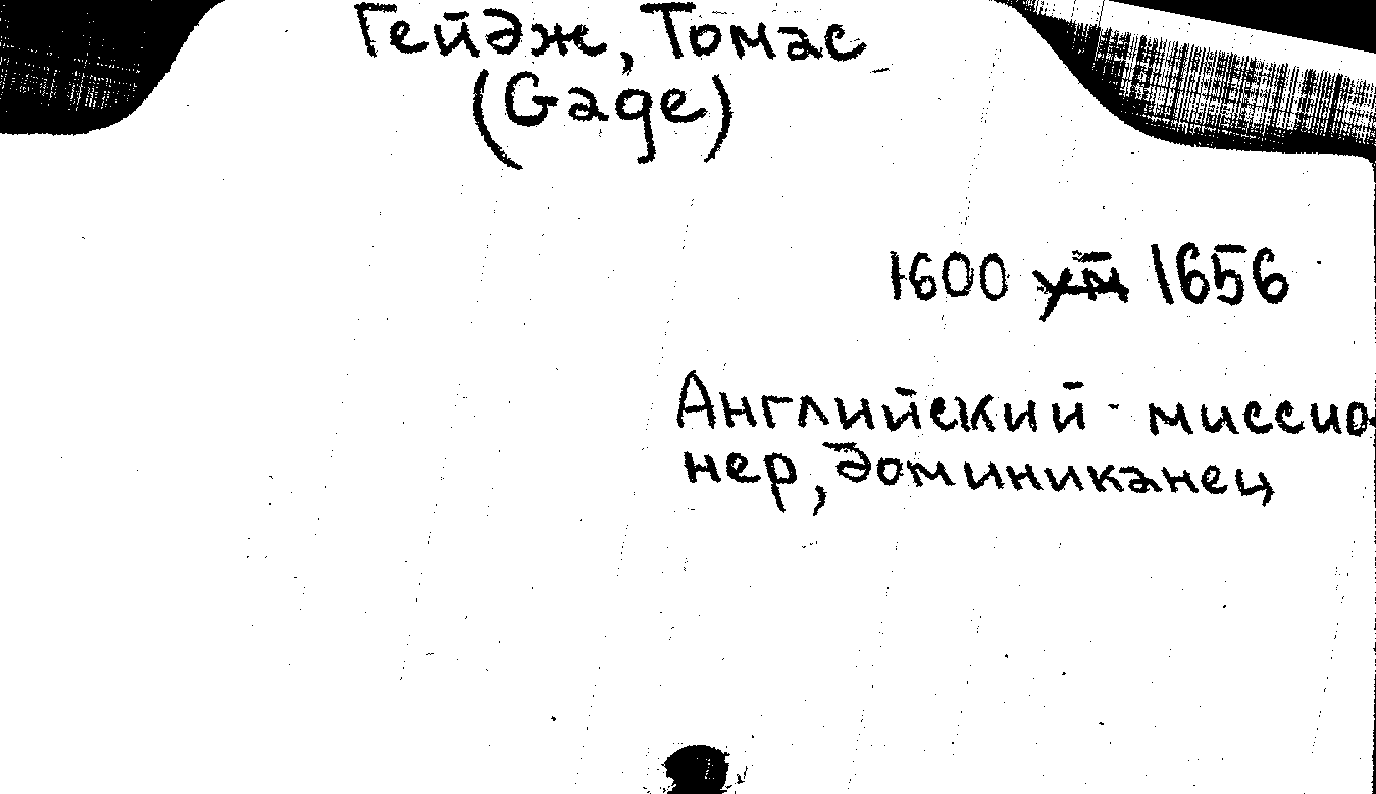 Гейдж, Томас
(Gage)
1600 ум 1656
Английский миссио-
нер, доминиканец